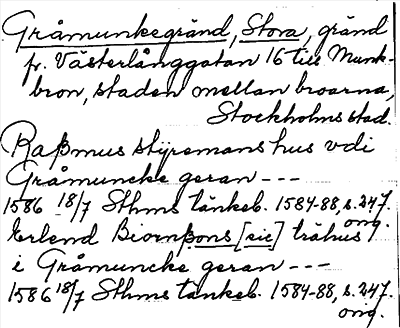 Gråmunkegränd, Stora, gränd
fr. Västerlånggatan 16 till Munk-
bron, staden mellan broarna,
Stockholms stad.
Raßmus styremans hus vdi
Gråmuncke geran ---
1586 18/7 Sthms tänkeb. 1584-88, s. 247.
orig.
Erlend Biornßons [sic] trähus
i Gråmuncke geran ---
1586 18/7 Sthms tänkeb. 1584-88, s. 247.
orig.